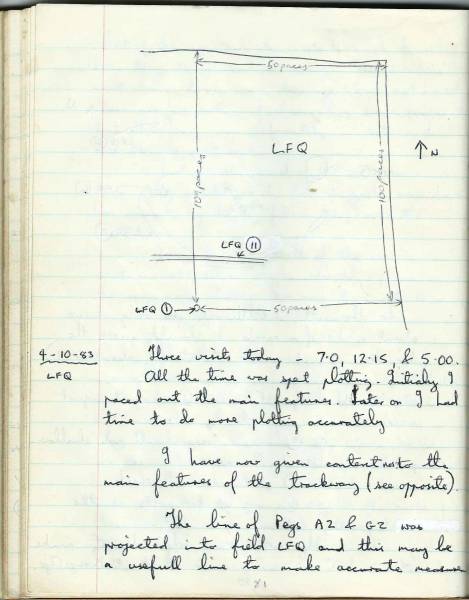 50 paces
109 paces
LFQ
100 paces
↑ N
LFQ ⑪
LFQ ① 50 paces
4-10-83
LFQ
Three visits today - 7.0, 12.15, & 5.00.
All the time was spent plotting. Initialy I
paced out the main features. Later on I had
time to do more plotting accurately
I have now given context nos to the
main features of the trackway (see opposite).
The line of Pegs A2 & G2 was
projected into field LFQ and this may be
a usefull line to make accurate measure